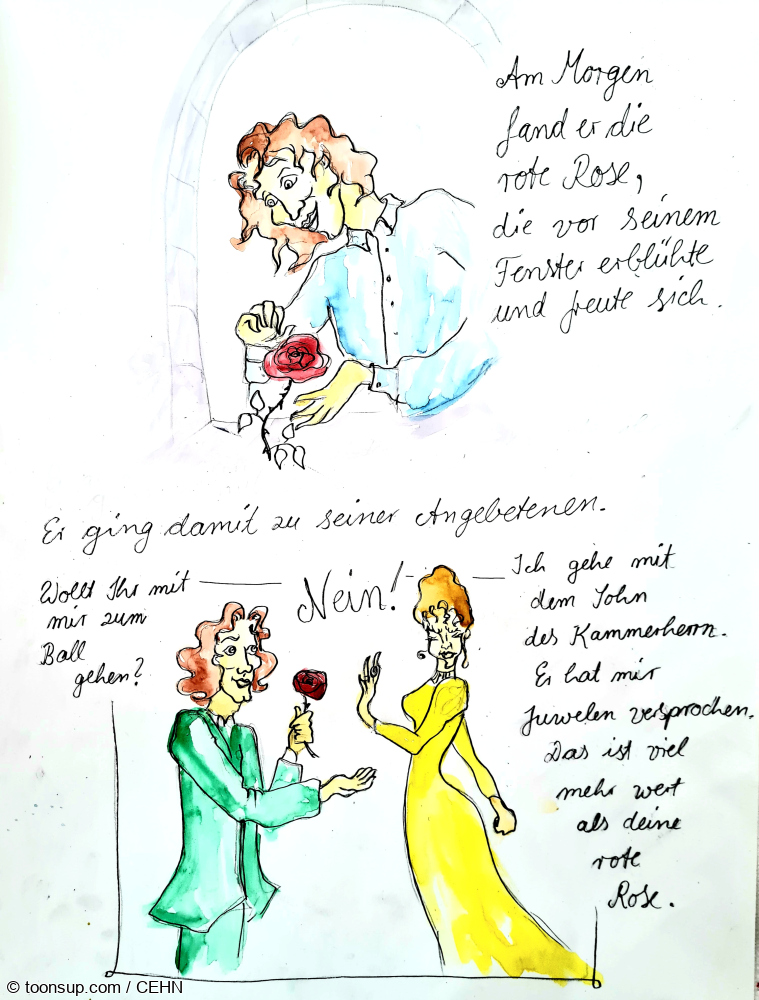 Am Morgen
fand er die
rote Rose,
die vor seinem
Fenster erblühte
und freute sich.
Er ging damit zu seiner Angebetenen.
Wollt Ihr mit
mir zum
Ball
gehen?
Nein!
Ich gehe mit
dem Sohn
des Kammerherrn.
Er hat mir
Juwelen versprochen.
Das ist viel
mehr wert
als deine
rote
Rose.
© toonsup.com / CEHN